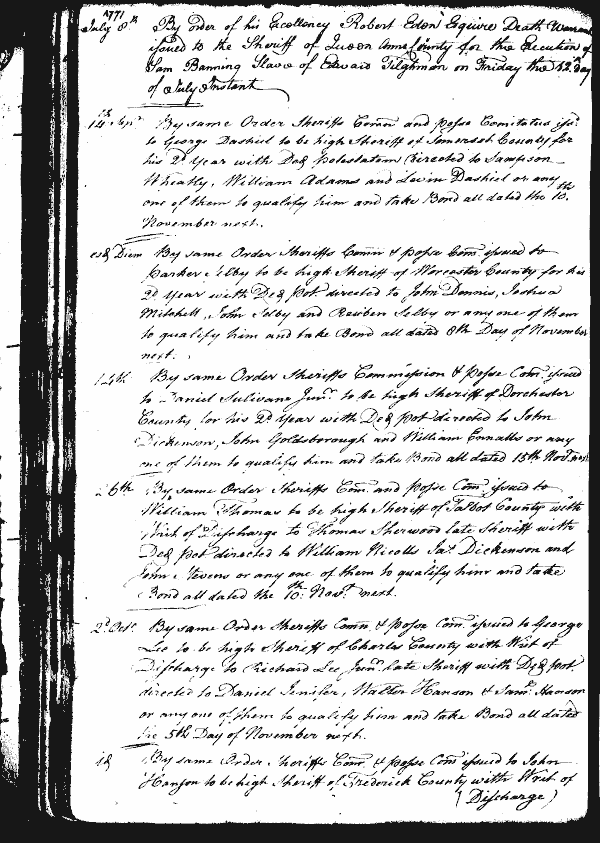 1771
July 8th By order of his Excellency Robert Eden Esquire Death Warrant
issued to the Sheriff of Queen Anns County for the Execution of
Sam Banning Slave of Edward Tilghman on Friday the 12th Day
of July Instant
14th Sepr By same Order Sheriffs Comn and posse Comitatus issd
to George Dashiel to be high Sheriff of Somerset County for
his 2d Year with Ded potestatem directed to Sampson
Wheatly, William Adams and Levin Dashiel or any
one of them to qualify him and take Bond all dated the 10th
November next.
es& Diem By same Order Sheriffs Comn & posse Com issued to
Parker Selby to be high Sheriff of Worcester County for his
2d Year with Ded pot directed to John Dennis, Joshua
Mitchell, John Selby and Reuben Selby or any one of them
to qualify him and take Bond all dated 8th Day of November
next.
By same Order Sheriffs Commission & posse Com issued
to Daniel Sulivane Junr to be high Sheriff of Dorchester
County for his 2d Year with Ded pot directed to John
Dickenson, John Goldsborough and William Ennalls or any
one of them to qualify him and take Bond all dated 15th Novr next
26th By same Order Sheriffs Com and posse Com issued to
William Thomas to be high Sheriff of Talbot County with
Writ of Discharge to Thomas Sherwood late Sheriff with
Ded pot directed to William Nicolls Jas Dickenson and
John Stevens or any one of them to qualify him and take
Bond all dated the 10th Novr next.
2d Octr By same Order Sheriffs Comn & posse Com issued to George
Lee to be high Sheriff of Charles County with Writ of
Discharge to Richard Lee Junr late Sheriff with Ded pot
directed to Daniel Jenifer, Walter Hanson & Saml Hanson
or any one of them to qualify him and take Bond all dated
the 5th Day of November next.
By same Order Sheriffs Com & posse Com issued to John
Hanson to be high Sheriff of Frederick County with Writ of
(Discharge)